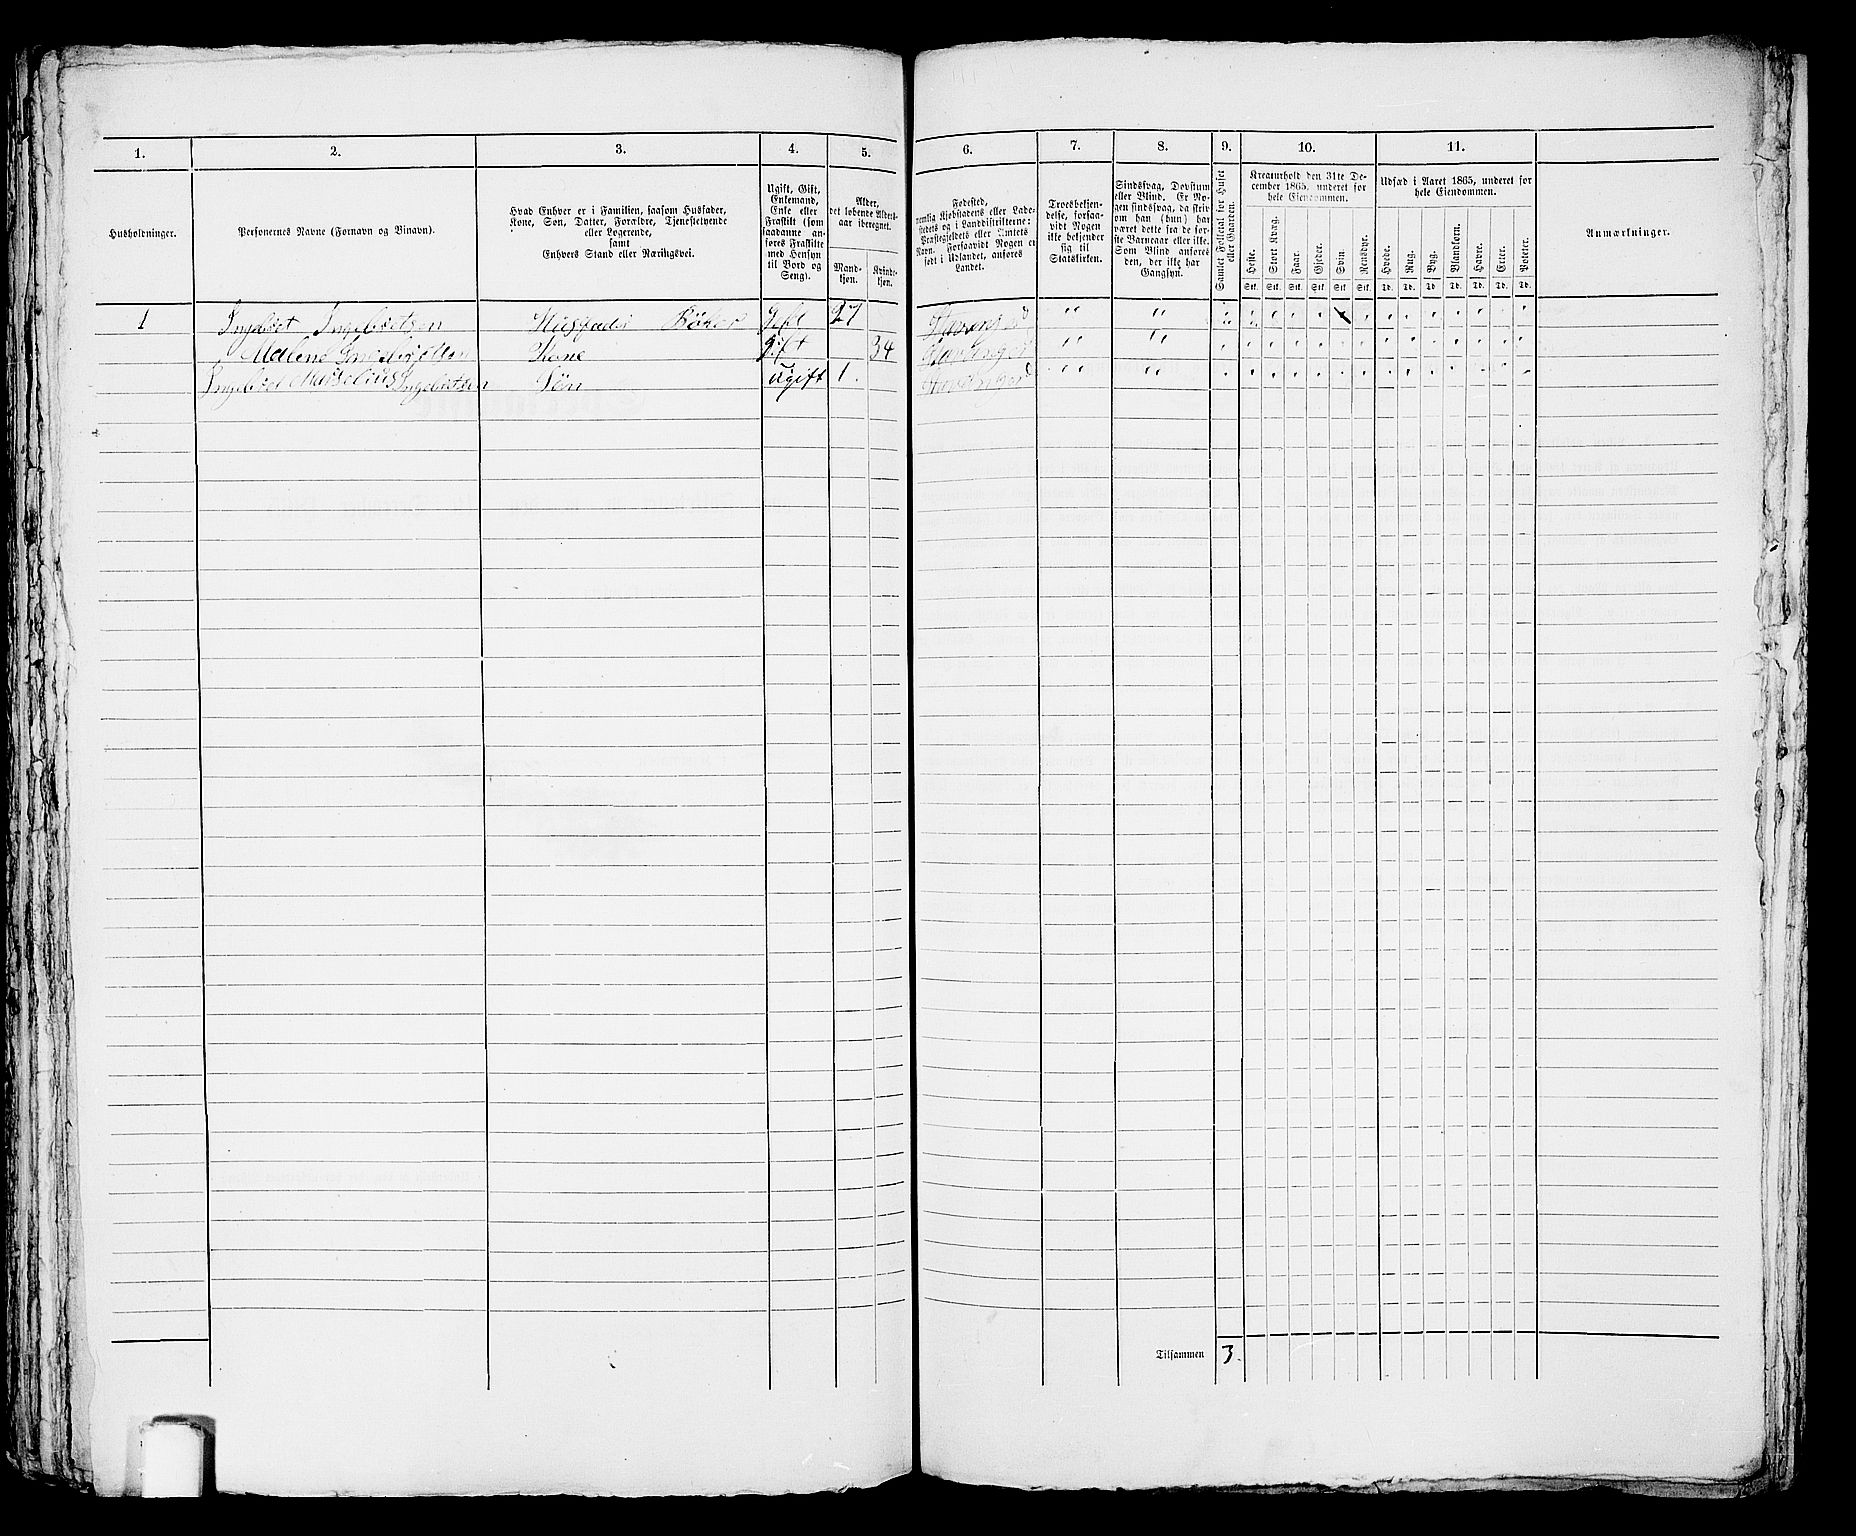 1. 2. 3. 4. 5. 6. 7. 8. 9. 10. 11.
Husholdninger.
Personernes Navne (Fornavn og Binavn).
Hvad Enhver er i Familien, saasom Husfader,
Kone, Søn, Datter, Forældre, Tjenestetyende
eller Logerende,
samt
Enhvers Stand eller Næringsvei.
Ugift, Gift,
Enkemand,
Enke eller
Fraskilt (som
saadanne an-
føres Fraskilte
med Hensyn
til Bord og
Seng).
Alder,
det løbende Alders-
aar iberegnet.
Mand-
kjøn.
Kvinde-
kjøn.
Fødested,
nemlig Kjøbstadens eller Lade-
stedets og i Landdistrikterne:
Præstegjeldets eller Amtets
Navn. Forsaavidt Nogen er
født i Udlandet, anføres
Landet.
Troesbekjen-
delse, forsaa-
vidt Nogen
ikke bekjender
sig til
Statskirken.
Sindssvag, Døvstum
eller Blind. Er No-
gen sindssvag, da skriv
om han (hun) har
været dette fra de før-
ste Barneaar eller ikke.
Som Blind anføres
den, der ikke har
Gangsyn.
Samlet Folketal for Huset
eller Gaarden.
Kreaturhold den 31te De-
cember 1865, underet for
hele Eiendommen.
Heste. Stort Kvæg. Faar. Gjeder. Svin. Rensdyr.
Stk. Stk. Stk. Stk. Stk. Stk.
Udsæd i Aaret 1865, underet for
hele Eiendommen.
Hvede. Rug. Byg. Blandkorn. Havre. Erter. Poteter.
Td. Td. Td. Td. Td. Td. Td.
Anmærkninger.
1 Ingebret Ingebretsen Husfader Bøker Gift 27 Stavanger
Malene Ingebretsen Kone Gift 34 Stavanger
Ingebret Marselius Ingebretsen Søn Ugift 1. Stavanger
Tilsammen 3.